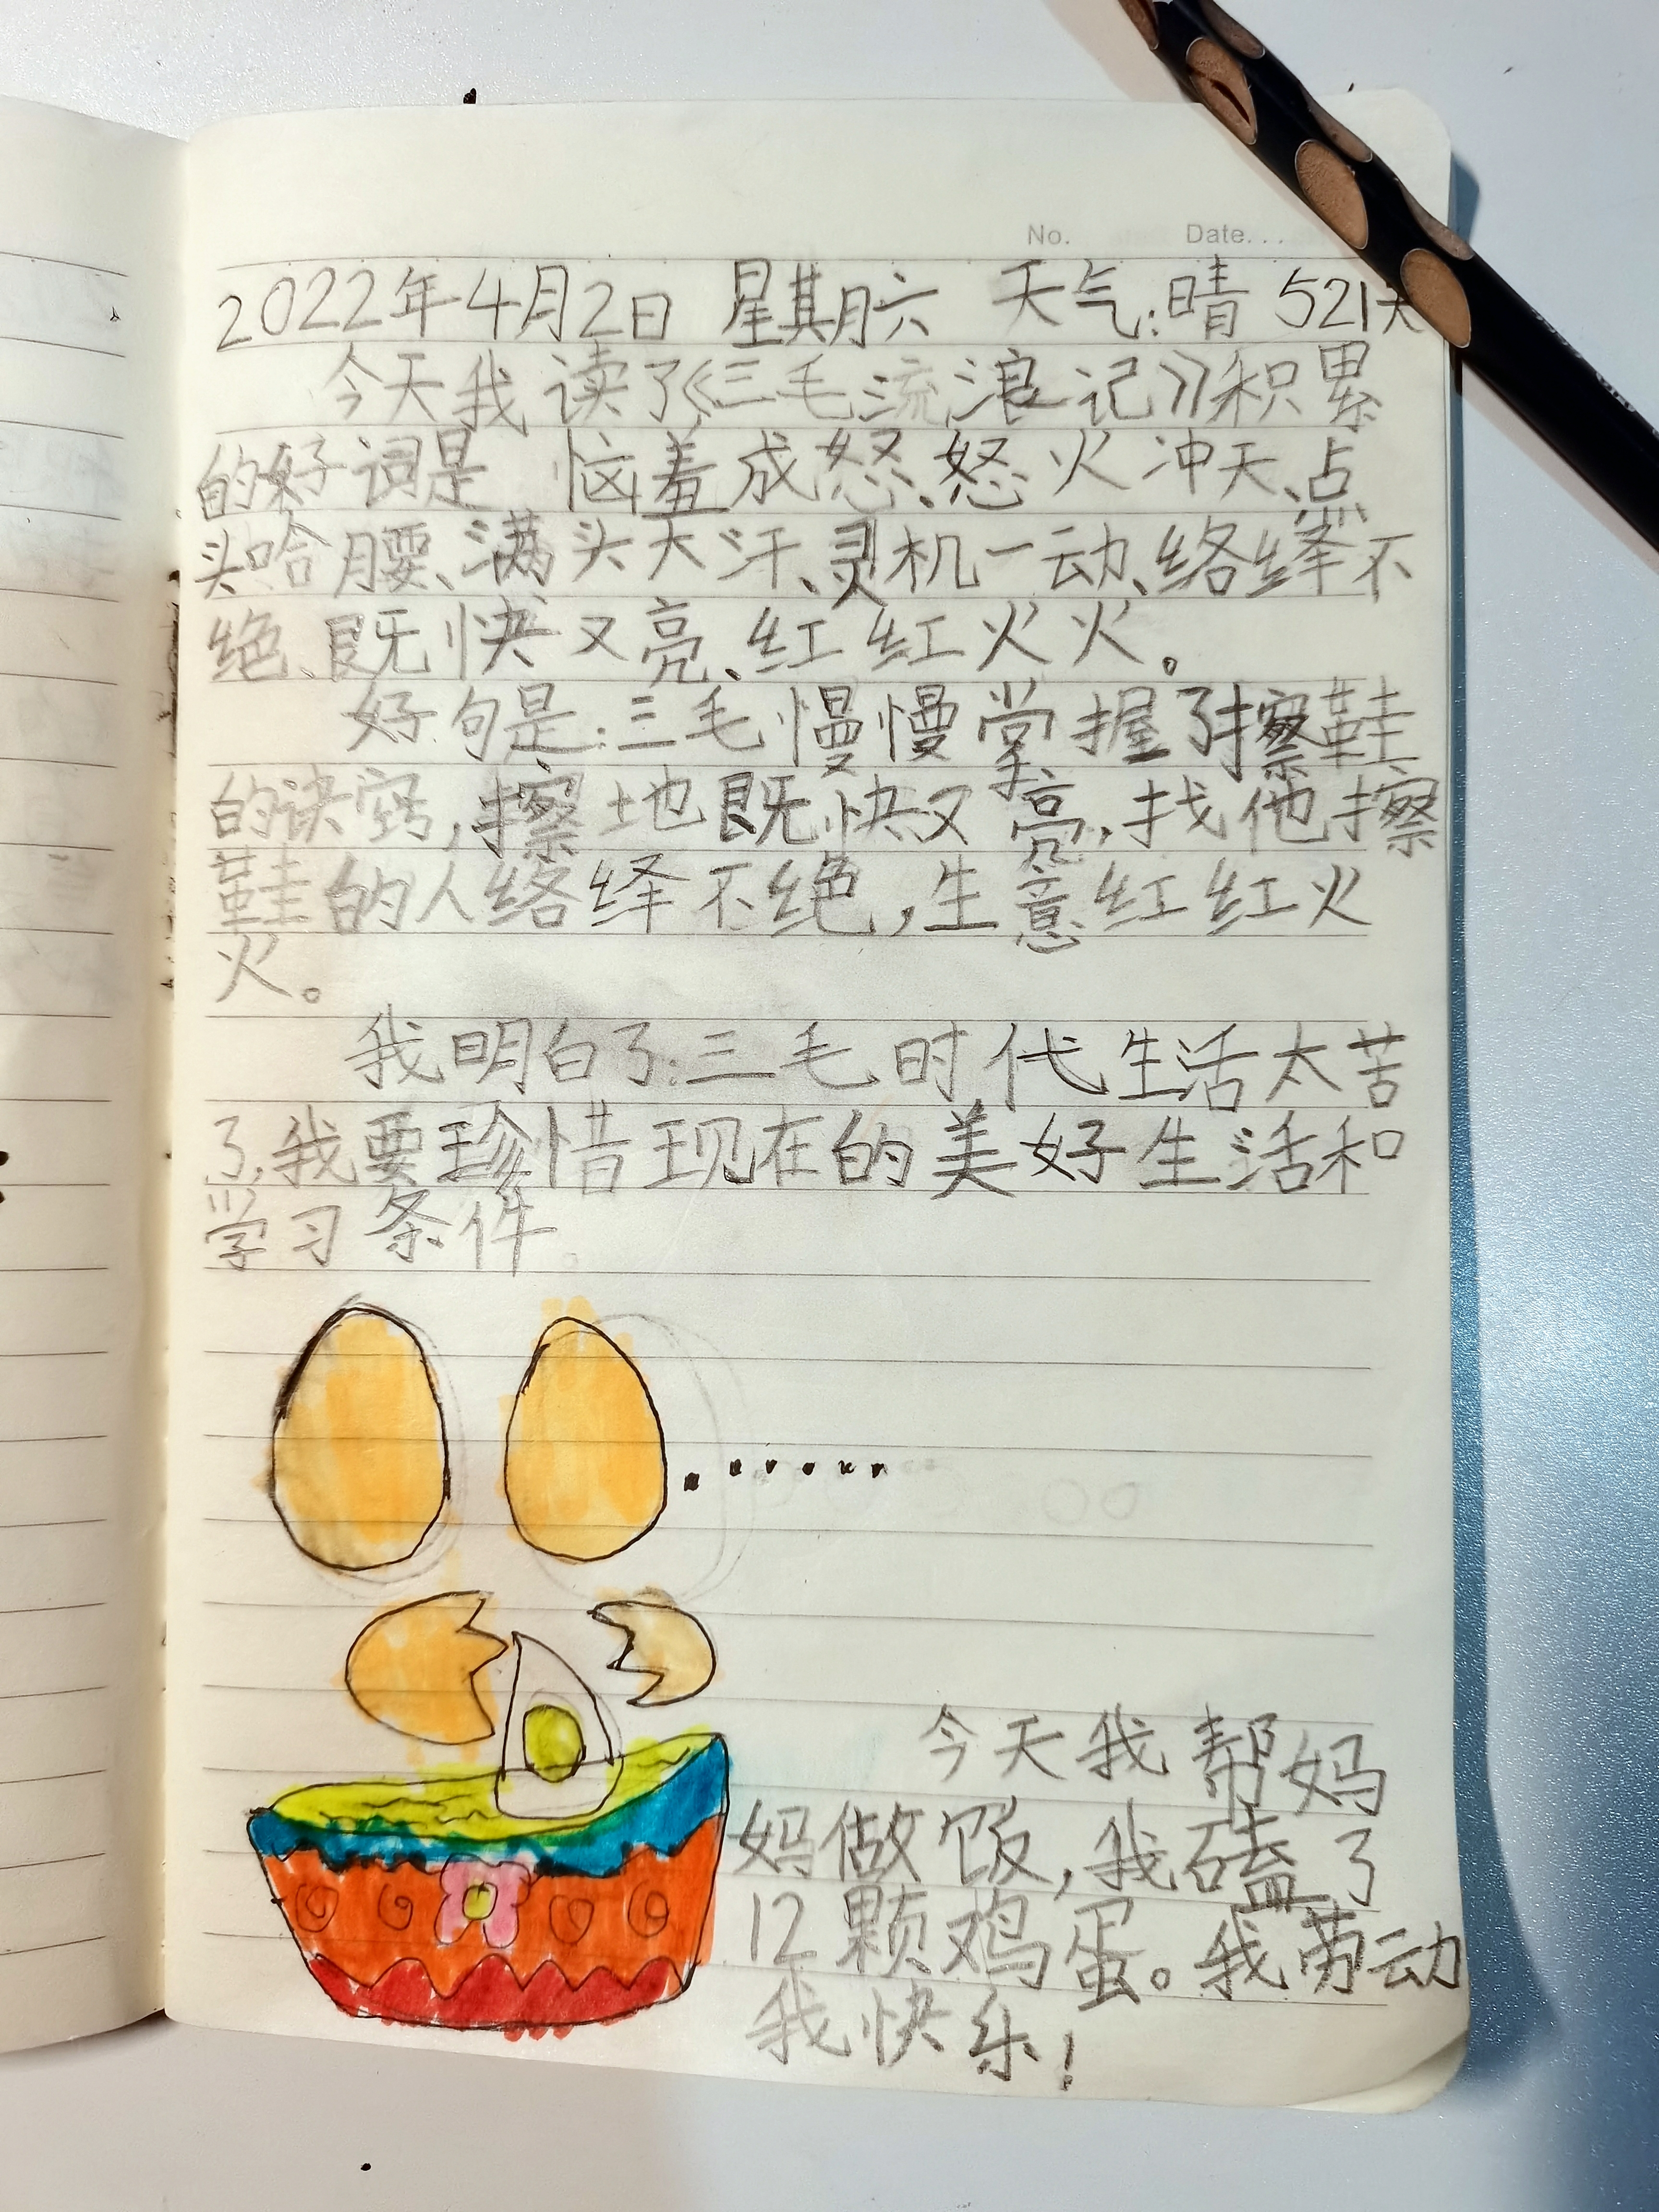 No. Date...
2022年4月2日 星期六 天气:晴 521天
今天我读了《三毛流浪记》积累
的好词是 恼羞成怒、怒火冲天、点
头哈腰、满头大汗、灵机一动、络绎不
绝、既快又亮、红红火火。
好句是:三毛慢慢掌握了擦鞋
的诀窍,擦地既快又亮,找他擦
鞋的人络绎不绝,生意红红火
火。
我明白了:三毛时代生活太苦
了,我要珍惜现在的美好生活和
学习条件。
今天我帮妈
妈做饭,我磕了
12颗鸡蛋。我劳动
我快乐!